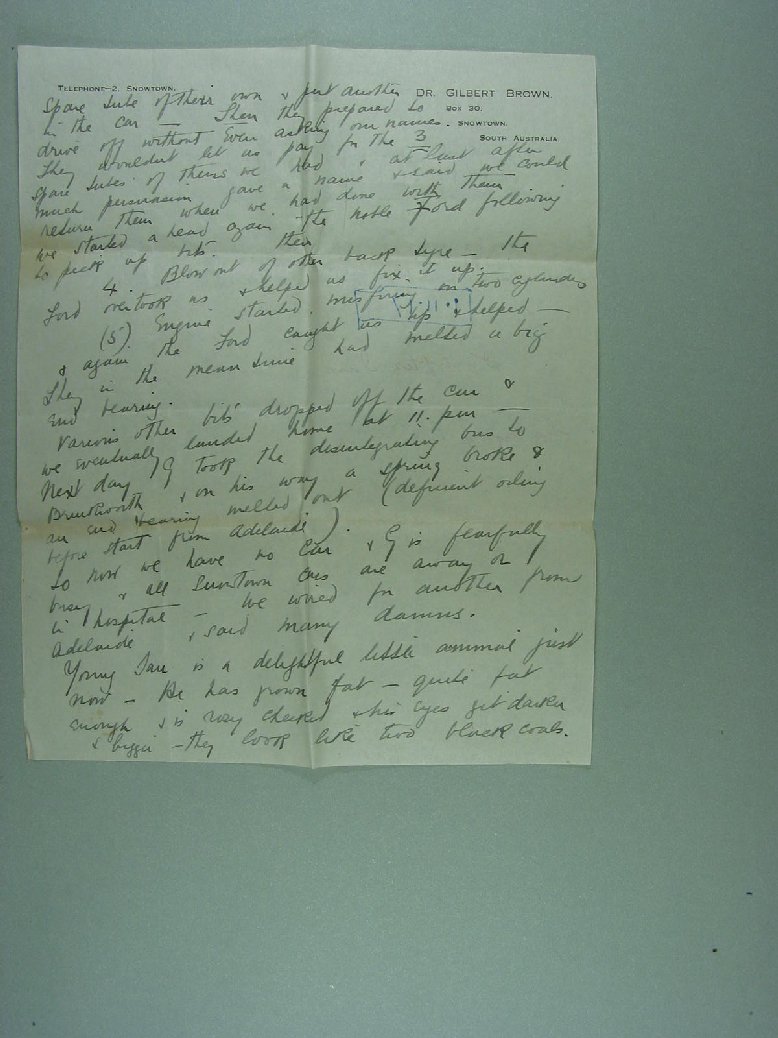 TELEPHONE—2, SNOWTOWN.
DR. GILBERT BROWN.
BOX 30.
SNOWTOWN.
SOUTH AUSTRALIA
spare tube of their own & put another
in the car — Then they prepared to
drive off without even asking our names.
They wouldn't let us pay for the 3
spare tubes of theirs we had & at last after
much persuasion gave a name & said we could
return them when we had done with them
we started ahead again — the noble Ford following
to pick up bits. then
4. Blow out of other back tyre — the
Ford overtook us & helped us fix it up.
(5). Engine started misfiring on two cylinders
& again the Ford caught us up & helped —
They in the mean time had melted a big
end bearing.
Various other bits dropped off the car &
we eventually landed home at 11. pm —
Next day G took the disintegrating bus to
& on his way a spring broke &
an end bearing melted out (deficient oiling
before start from Adelaide).
So now we have no car & G is fearfully
busy & all Snowtown cars are away or
in hospital — We wired for another from
Adelaide & said many damns.
Young Ian is a delightful little animal just
now — He has grown fat — quite fat
enough & is rosy cheeked & his eyes get darker
& bigger — they look like two black coals.